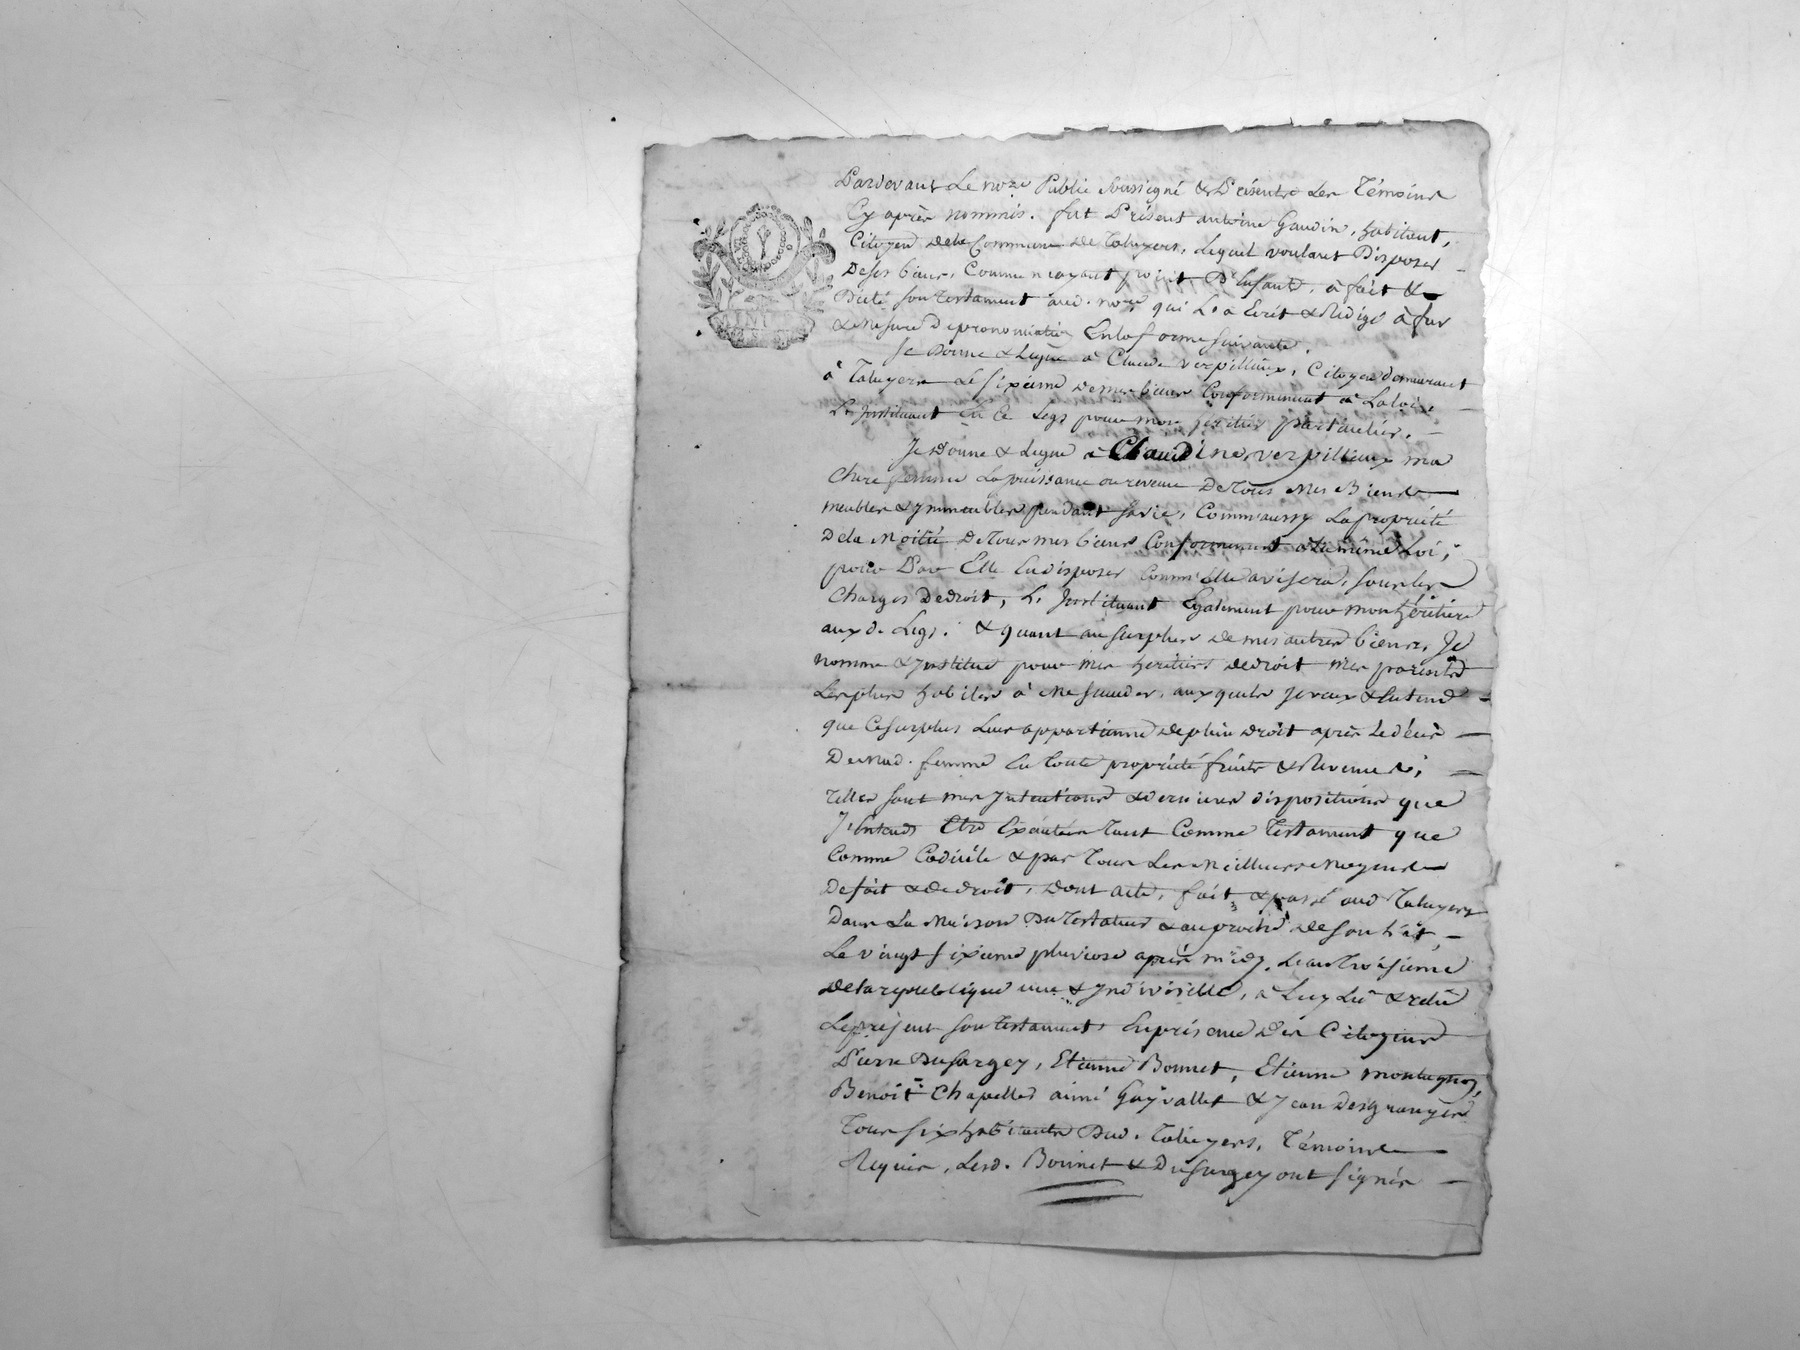 Pardevant Le nore Public soussigné & Présents Les Témoins
Cy après nommés. fut Présent antoine Gaudin, habitant,
Citoyen dela Commune de Taluyers, Lequel voulant Disposer
De ses biens, Comme n'ayant point D'Enfants, à fait &
Dicté son Testament aud. nore, qui L'a Ecrit & Rédigé à fur
& Mesure De prononciation En la forme suivante.
Je Donne & Legue à Claude verpillieux, Citoyen demeurant
à Taluyers Le sixieme de mes biens Conformement à La loi,
L'Instituant En Ce Legs pour mon heritier particulier.
Je Donne & Legue à Claudine verpillieux ma
Chere femme La puissance ou revenu De Tous Mes Biens
meubles & Immeubles pendant sa vie, Comm'aussy La propriété
Dela Moitié De Tous mes biens Conformement à La même Loi;
pour Par Elle En disposer Comm'Elle avisera, sous les
Charges De droit, L'Instituant Egalement pour mon héritiere
aux d. Legs. & quant au surplus de mes autres biens, Je
nomme & Institue pour mes heritiers de droit mes parents
Les plus habiles à Me succeder, aux quels Je veux & Entend
que Ce surplus Leur appartienne de plein droit après Le décès
De Mad. femme En Toute propriété fruits & Revenus;
Telles sont mes Intentions & dernieres dispositions que
J'Entends Etre Exécutées Tant Comme Testament que
Comme Codicile & par Tous Les Meilleurs Moyens
De fait & de droit, dont acte, fait & passé aud Taluyers
Dans La Maison Du Testateur & au proche de son lit,
Le vingt sixieme pluviose après midy, L'an Troisieme
De la republique une & Indivisible, à Luy Lû & relû
Le présent son Testament, En présence Des Citoyens
Pierre Dusurgey, Etienne Bonnet, Etienne montagnon,
Benoit Chapelles aimé Guyvallet & Jean Desgranges
Tous six habitants Dud. Taluyers, Témoins
Requis, Lesd. Bonnet & Dusurgey ont signés